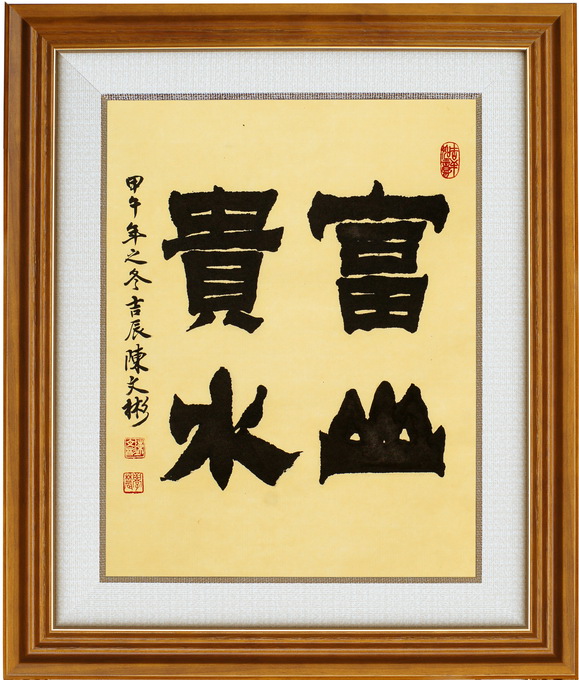 富山
貴水
甲午年之冬吉辰陳文彬